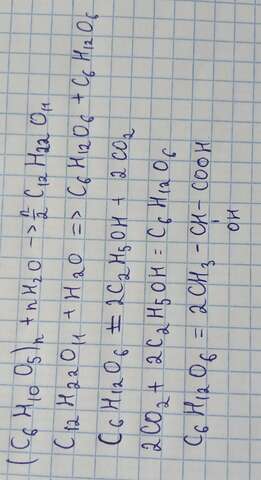 (C₆H₁₀O₅)ₙ + nH₂O → n/2 C₁₂H₂₂O₁₁
C₁₂H₂₂O₁₁ + H₂O => C₆H₁₂O₆ + C₆H₁₂O₆
C₆H₁₂O₆ = 2C₂H₅OH + 2CO₂
2CO₂ + 2C₂H₅OH = C₆H₁₂O₆
C₆H₁₂O₆ = 2CH₃ - CH - COOH
OH